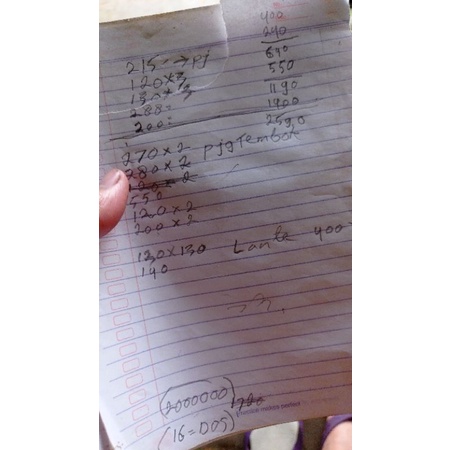 400
240
640
550
1190
1400
2590
215 → pj
120 x 3
130 x 3
288=
200=
270 x 2 pjg Tembok
280 x 2
120 x 2
550
120 x 2
200 x 2
130 x 130 Lante 400
140
2000000
16 = DOS